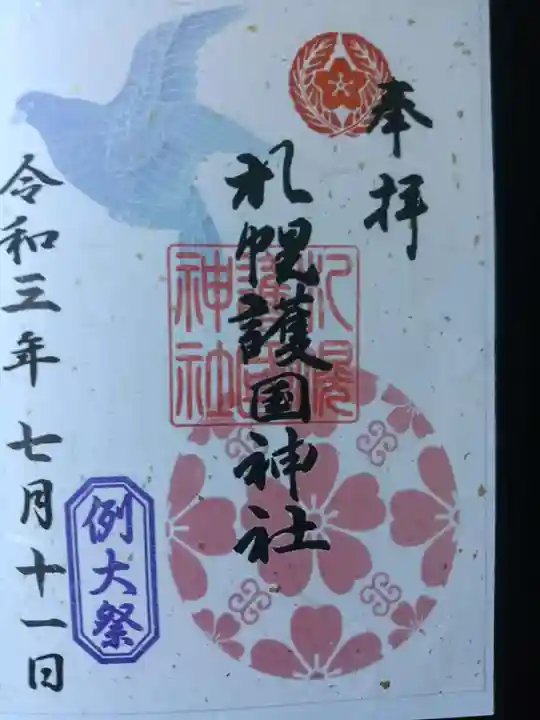 奉拝
札幌護国神社
札幌護国神社
例大祭
令和三年七月十一日